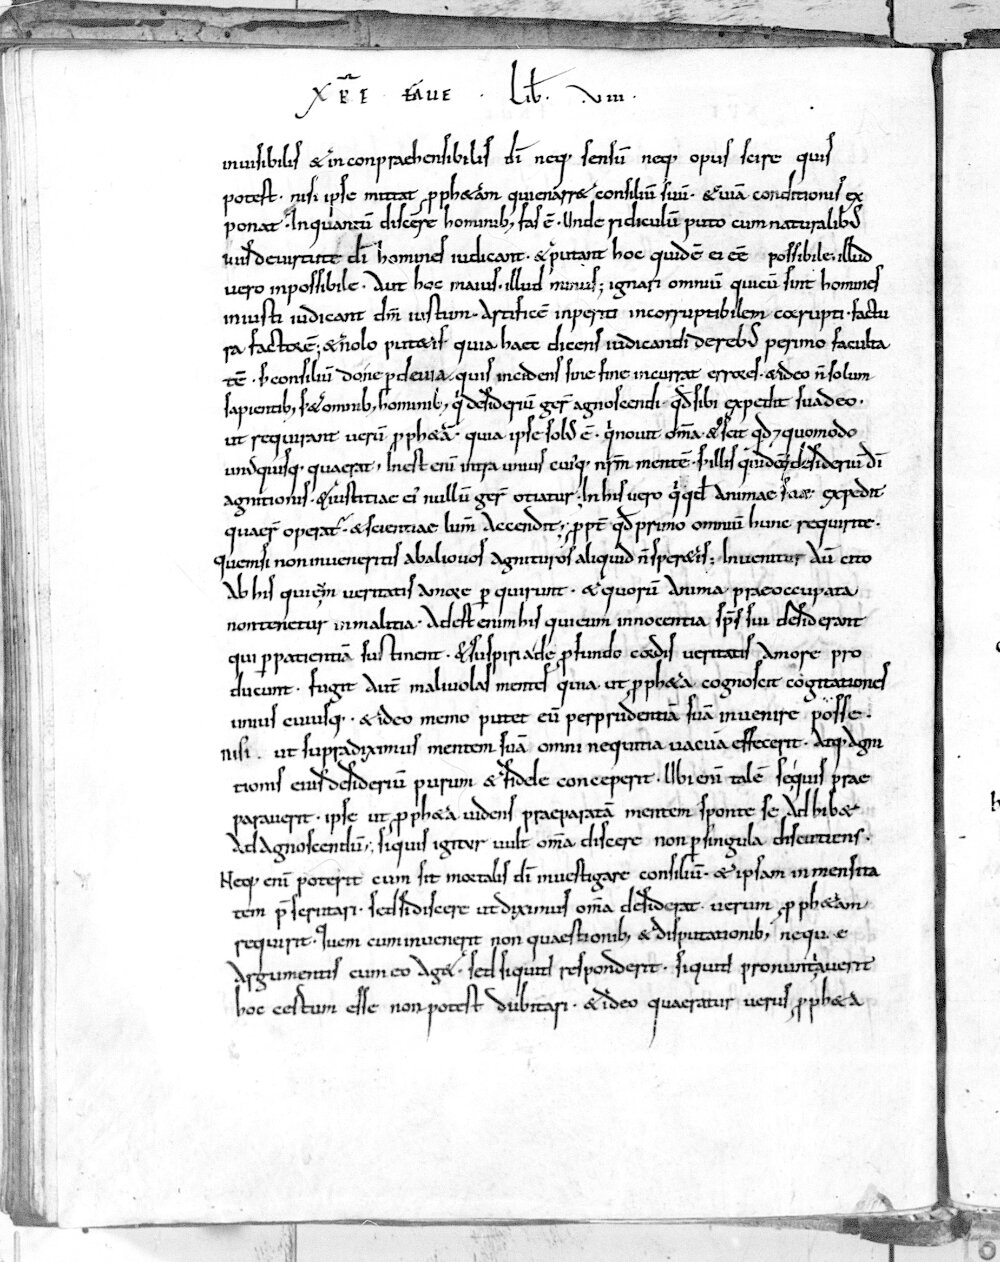 XPI fAUE . Lib. VIII.
inuisibilis & inconprachensibilis di neq; sensū neq; opus scire quis
potest . nisi ipse mittat, p̱ph&am qui enarr& consiliū suū . & uiā conditionis ex
ponat . In quantū discere hominib; fas ē . Unde ridiculū puto cum naturalib;
uis de uirtute di homines iudicant . & putant hoc quidē ei eē possibile . illud
uero inpossibile . Aut hoc maius . illud minus ; ignari omniū quicū sint homines
iniusti iudicant dm̄ iustum . Artificē inperiti incorruptibilem corrupti . factu
ra factorē ; & nolo put&is quia haec dicens iudicandi de reb; perimo faculta
tē . s; consiliū do ne p deuia quis incidens sine fine incurrat errores . & ideo n̄ solum
sapientib; s; & omnib; hominib; q̄ desideriū ger̄ agnoscendi . qd̄ sibi expedit suadeo .
ut requirant uerū p̱ph&ā . quia ipse solus ē . q̄ nouit om̄a . & scit qd 7 quomodo
unusquisq; quaerat . Inest enī intra unius cuiq; nr̄m mentē . s; illis quidē desideriū di
agnitionis . & iustitiae ei nullū ger̄ otiatur . In his uero q̄ qd Animae suae expedit
quaer̄ operat̄ . & scientiae lum̄ Accendit ; ppt̄ qd primo omniū hunc requirite .
Quem si non inueneritis ab alio uos agnituros aliquid n̄ sper&is ; Inuenitur Aū cito
Ab his qui eum ueritatis Amore perquirunt . & quorū Anima praeoccupata
non tenetur in malitia . Adest enim his qui cum innocentia sps̄ sui desiderant
qui p patientiā sustinent . & suspiria de p̱fundo cordis ueritatis Amore pro
ducunt . fugit Aut̄ maliuolas mentes quia ut p̱ph&a cognoscit cogitationes
unius cuiusq; . & ideo nemo putet eū per prudentiā suā inuenire posse .
nisi . ut supra diximus mentem suā omni nequitia uacuā effecerit . Atq; Agni
tionis eius desideriū purum & fidele conceperit . Ubi enī talē se quis prae
parauerit . ipse ut p̱ph&a uidens praeparatā mentem sponte se Adhib&
Ad Agnoscendū ; siquis igitur uult om̄a discere non p singula discutiens .
Neq; enī poterit cum sit mortalis di inuestigare consiliū . & ipsam inmensita
tem pscrutari . sed si discere ut diximus om̄a desiderat . uerum p̱ph&am
requirit . Quem cum inuenerit non quaestionib; & disputationib; neque
Argumentis cum eo Ag& . sed siquid responderit . siquid pronuntiauerit
hoc certum esse non potest dubitari . & ideo quaeratur uerus p̱ph&a